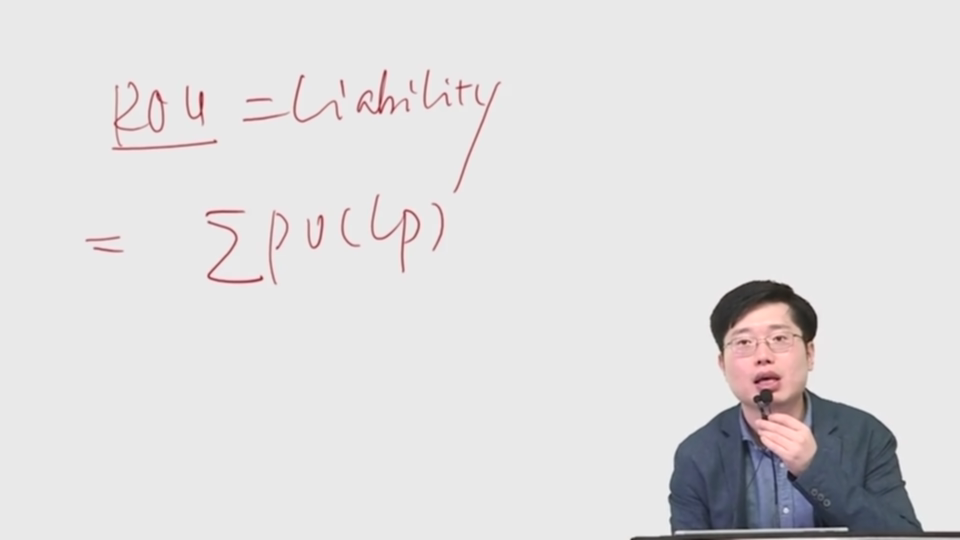 ROU = Liability
= ΣPV(LP)